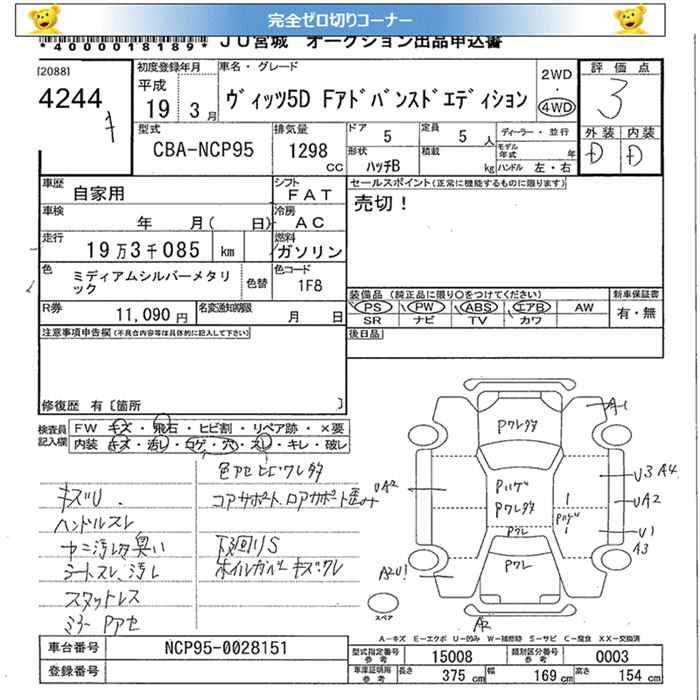 完全ゼロ切りコーナー
*4000018189* JU宮城 オークション出品申込書
[2088]
4244
初度登録年月
平成
19 3月
車名・グレード
ヴィッツ5D Fアドバンスドエディション
2WD
・
4WD
評価点
3
外装 内装
D D
型式
CBA-NCP95
排気量
1298 CC
ドア 5
定員 5 人
形状 ハッチB
積載 kg
ディーラー・並行
モデル年式 年
ハンドル 左・右
車歴 自家用
シフト FAT
車検 年 月( 日)
冷房 AC
走行 19万3千085 km
燃料 ガソリン
色 ミディアムシルバーメタリック
色替
色コード 1F8
R券 11,090円
名変通知期限 月 日
セールスポイント(正常に機能するものに限ります)
売切!
装備品(純正品に限り〇をつけてください)
PS PW ABS エアB AW
SR ナビ TV カワ
新車保証書
有・無
後日品
注意事項申告欄(不具合内容等は具体的に記入して下さい)
修復歴 有〔箇所 〕
検査員記入欄
FW キズ・飛石・ヒビ割・リペア跡・×要
内装 キズ・汚レ・コゲ・穴・スレ・キレ・破レ
キズU.
ハンドルスレ
シートスレ、汚レ
スタットレス
ミラー Pアセ
色アセ ヒビワレ多
コアサポート、ロアサポート歪み
下回りS
ホイルカバー キズワレ
Pワレ多
Pハゲ
Pワレ多
Pワレ
Pワレ
Pハゲ
A-1
U3 A4
UA2
U1
A3
UA2
A2U1
A2
スペア
A-キズ E-エクボ U-凹み W-補修跡 S-サビ C-腐食 XX-交換済
車台番号 NCP95-0028151
登録番号
型式指定番号 参考 15008
類別区分番号 参考 0003
車庫証明用 参考 長さ 375 cm 幅 169 cm 高さ 154 cm